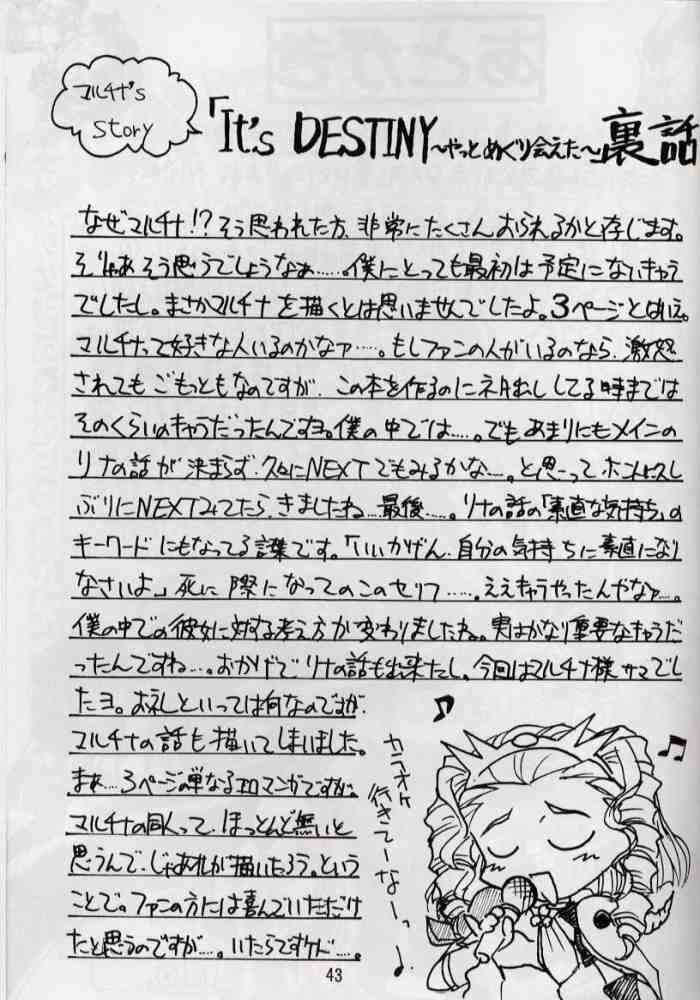 マルチナ's
Story
「It's DESTINY〜やっとめぐり会えた〜」裏話
なぜマルチナ!?そう思われた方、非常にたくさんおられるかと存じます。
そりゃあそう思うでしょうなぁ……。僕にとっても最初は予定にないキャラ
でしたし。まさかマルチナを描くとは思いませんでしたよ。3ページとはいえ。
マルチナって好きな人いるのかなァ……。もしファンの人がいるのなら、激怒
されてもごもっともなのですが、この本を作るのにネタ出ししてる時までは
そのくらいのキャラだったんですヨ。僕の中では……。でもあまりにもメインの
リナの話が決まらず、久々にNEXTでもみるかな……。と思ってホントに久し
ぶりにNEXTみてたら、きましたね…最後……。リナの話の「素直な気持ち」の
キーワードにもなってる言葉です。「いいかげん、自分の気持ちに素直になり
なさいよ」死に際になってのこのセリフ……。ええキャラやったんやなァ…。
僕の中での彼女に対する考え方が変わりましたね。実はかなり重要なキャラだ
ったんですね…。おかげでリナの話も出来たし。今回はマルチナ様サマでし
たヨ。お礼といっては何なのですが、
マルチナの話も描いてしまいました。
まぁ…3ページの単なるエロマンガですが。
マルチナの同人って、ほっとんど無いと
思うんで、じゃあオレが描いたろう。という
ことで。ファンの方には喜んでいただけ
たと思うのですが…。いたらですケド…。
カラオケ
行きてーなーっ
43